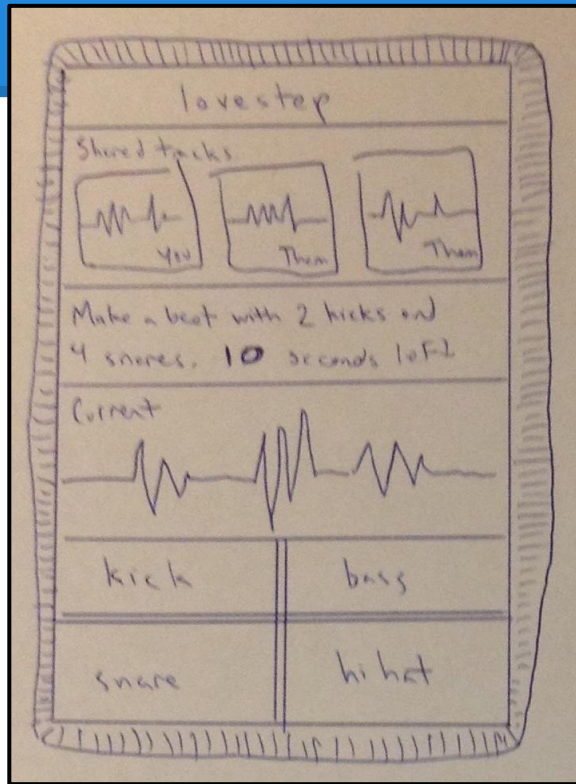 lovestep
Shared tracks
You
Them
Them
Make a beat with 2 kicks and
4 snares. 10 seconds left
Current
kick
bass
snare
hi hat